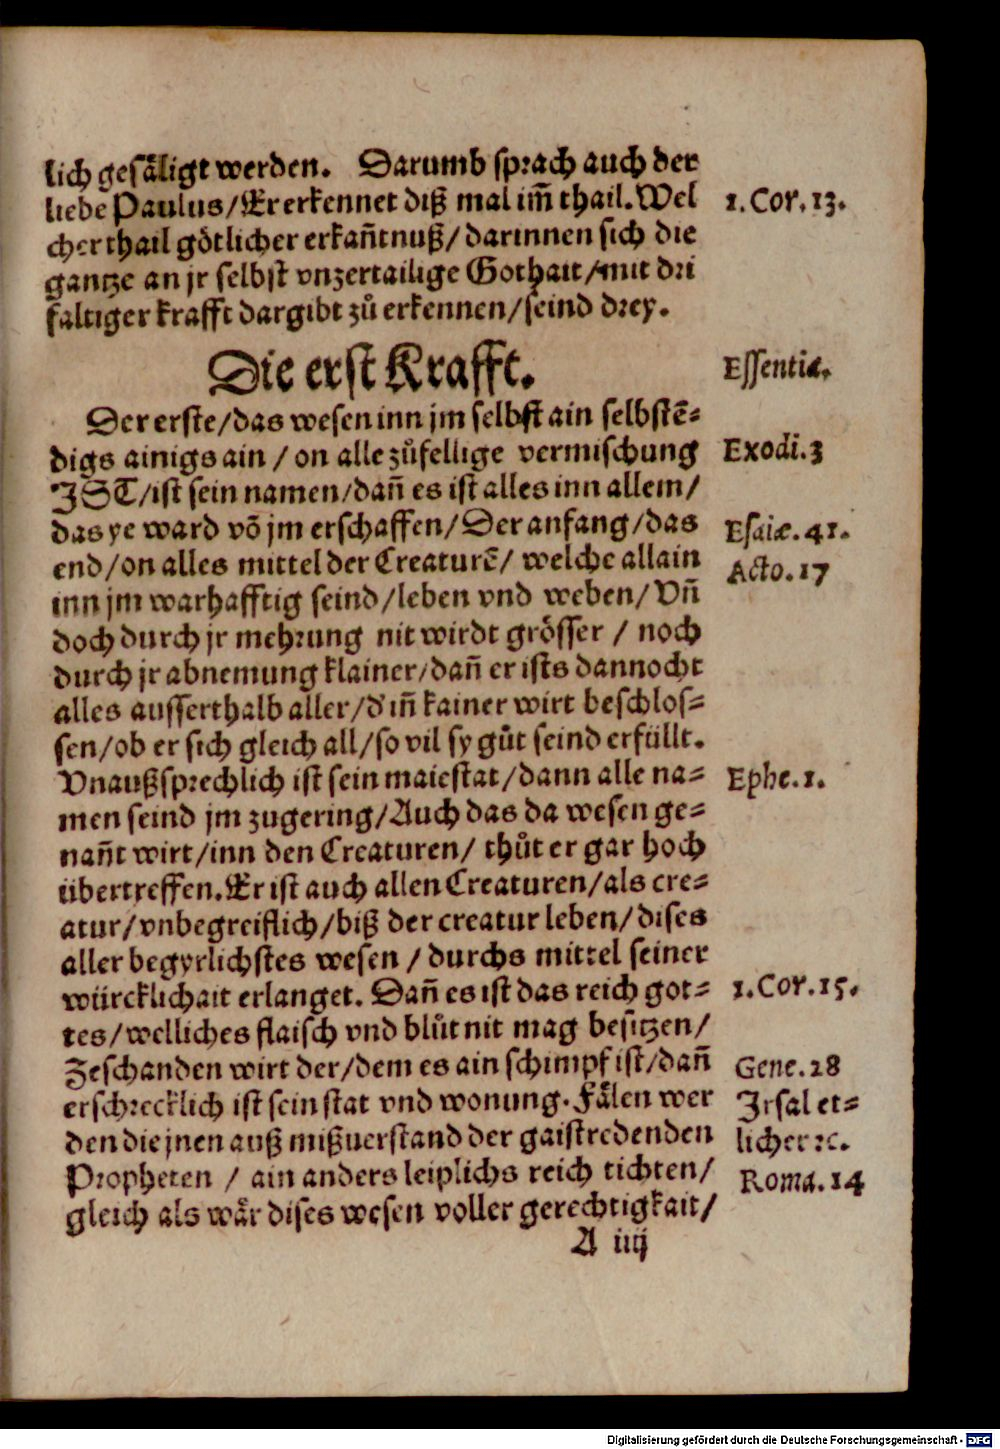 lich gesåligt werden. Darumb sprach auch der
liebe Paulus/Er erkennet diß mal im̃ thail. Wel
cher thail götlicher erkañtnuß/darinnen sich die
gantze an jr selbst vnzertailige Gothait/mit dri
faltiger krafft dargibt zů erkennen/seind drey.
1. Cor. 13.
Die erst Krafft.
Essentiæ.
Der erste/das wesen inn jm selbst ain selbstẽ-
digs ainigs ain/on alle zůfellige vermischung
JST/ist sein namen/dañ es ist alles inn allem/
das ye ward võ jm erschaffen/Der anfang/das
end/on alles mittel der Creaturẽ/welche allain
inn jm warhafftig seind/leben vnd weben/Vñ
doch durch jr mehrung nit wirdt grösser/noch
durch jr abnemung klainer/dañ er ists dannocht
alles ausserthalb aller/d' iñ kainer wirt beschlos-
sen/ob er sich gleich all/so vil sy gůt seind erfüllt.
Vnaußsprechlich ist sein maiestat/dann alle na-
men seind jm zugering/Auch das da wesen ge-
nañt wirt/inn den Creaturen/thůt er gar hoch
übertreffen. Er ist auch allen Creaturen/als cre-
atur/vnbegreiflich/biß der creatur leben/dises
aller begyrlichstes wesen/durchs mittel seiner
würcklichait erlanget. Dañ es ist das reich got-
tes/welliches flaisch vnd blůt nit mag besitzen/
Zeschanden wirt der/dem es ain schimpf ist/dañ
erschrecklich ist sein stat vnd wonung. Fålen wer
den die jnen auß mißuerstand der gaistredenden
Propheten/ain anders leiplichs reich tichten/
gleich als wår dises wesen voller gerechtigkait/
Exodi. 3
Esaiæ. 41.
Acto. 17
Ephe. 1.
1. Cor. 15.
Gene. 28
Jrsal et-
licher ꝛc.
Roma. 14
A iiij
Digitalisierung gefördert durch die Deutsche Forschungsgemeinschaft - DFG